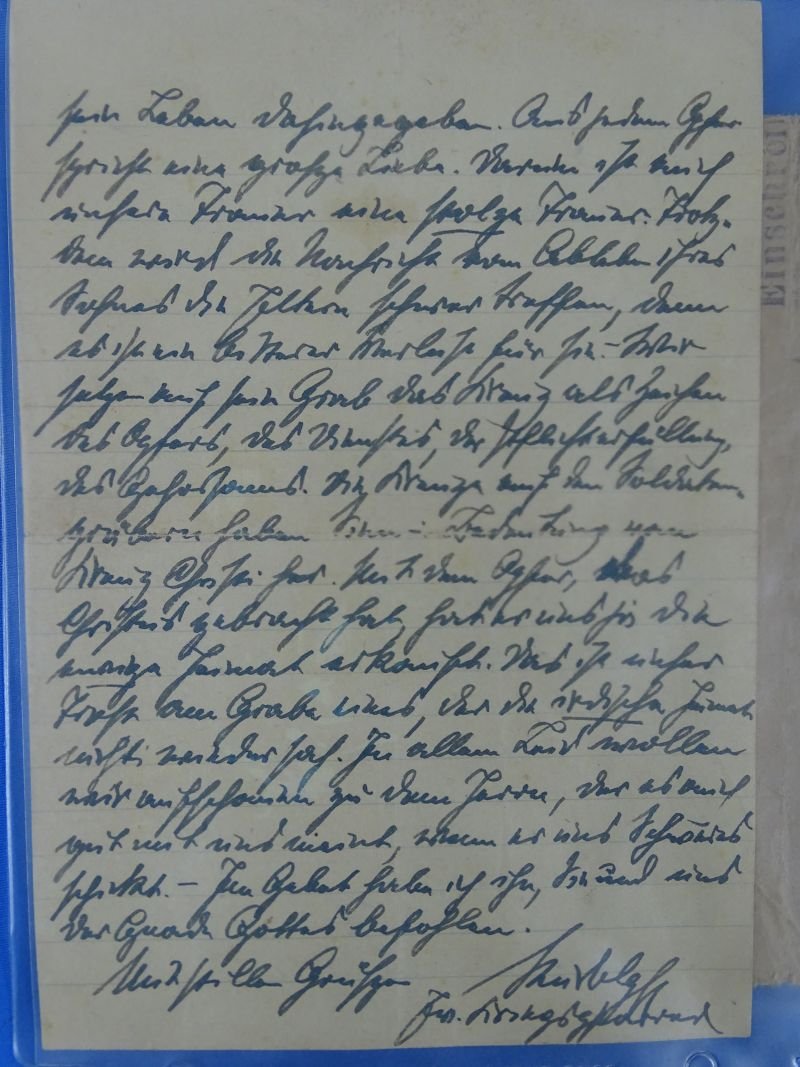 sein Leben dahingegeben. Aus jedem Opfer
spricht eine große Liebe. Darum ist auch
unsere Trauer eine stolze Trauer. Trotz-
dem wird die Nachricht vom Ableben ihres
Sohnes die Eltern schwer treffen, denn
es ist ein bitterer Verlust für sie. – Wir
setzen auf sein Grab das Kreuz als Zeichen
des Opfers, des Dienstes, der Pflichterfüllung,
des Gehorsams. Die Kreuze auf den Soldaten-
gräbern haben Sinn u. Bedeutung vom
Kreuz Christi her. Mit dem Opfer, das
Christus gebracht hat, hat er uns für die
ewige Heimat erkauft. Das ist unser
Trost am Grabe eines, der die irdische Heimat
nicht wieder sah. In allem Leid wollen
wir aufschauen zu dem Herrn, der es auch
gut mit uns meint, wenn er uns Schweres
schickt. – Im Gebet habe ich ihn, Sie und uns
der Gnade Gottes befohlen.
Mit stillen Grüßen
Kriegspfarrer
Einschrei